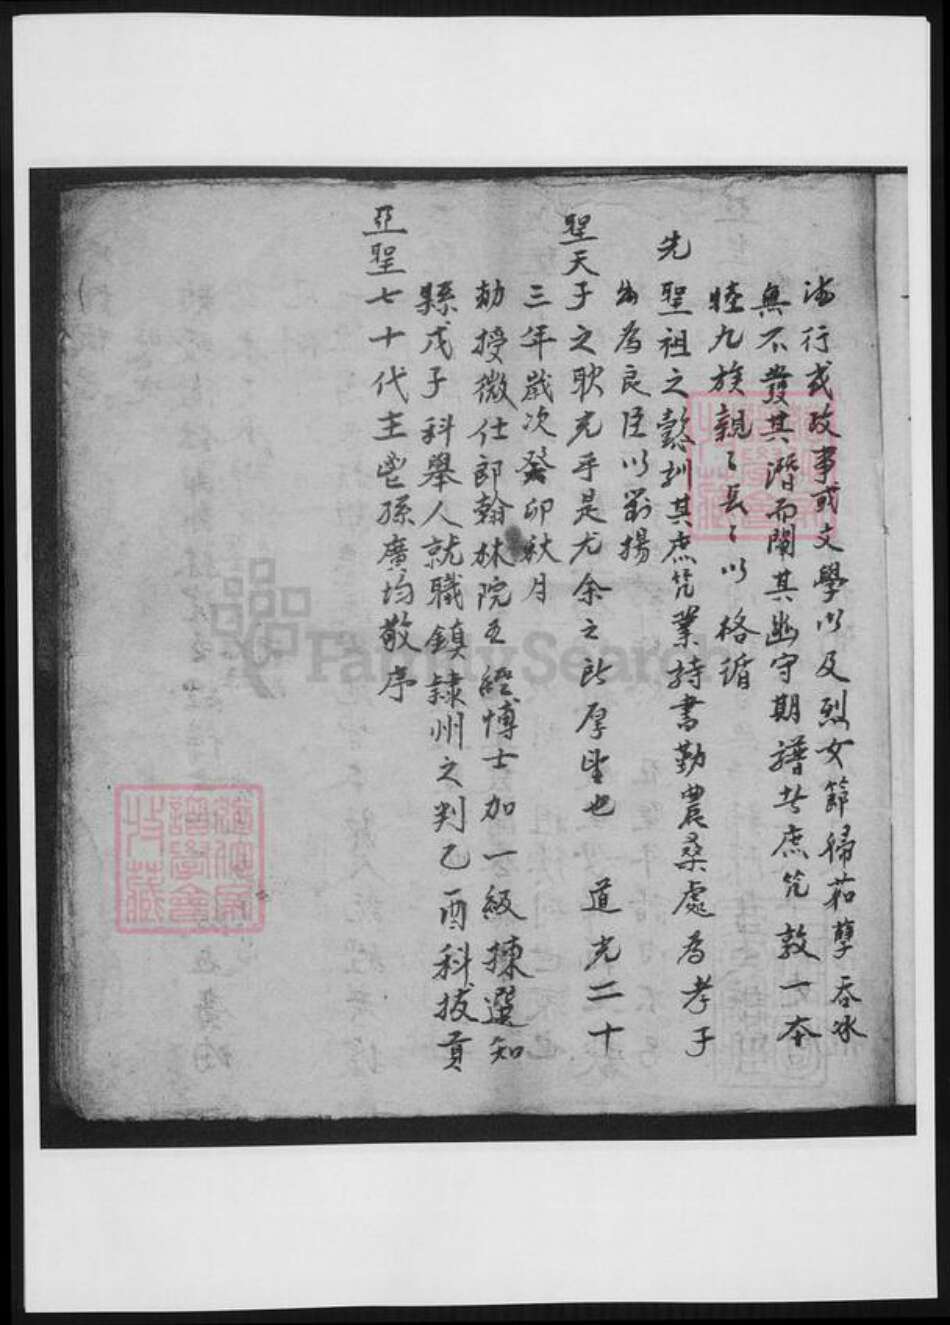 行或政事或文學以及烈女節婦茹孽吞冰
無不發其潛而闡其幽守期譜者庶几敦一本
睦九族親〻長〻以 格循
先聖祖之懿訓其庶凭業持書勤農桑處為孝子
出為良臣以對揚
聖天子之耿光乎是尤余之所厚望也 道光二十
三年歲次癸卯秋月
勅授微仕郎翰林院五經博士加一級揀選知
縣戊子科舉人就職鎮隸州之判乙酉科拔貢
亞聖七十代主鬯孫廣均敬序
FamilySearch